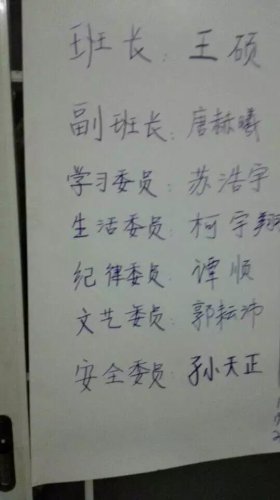 班长：王硕
副班长：唐赫曦
学习委员：苏浩宇
生活委员：柯宇翔
纪律委员：谭顺
文艺委员：郭耘沛
安全委员：孙天正